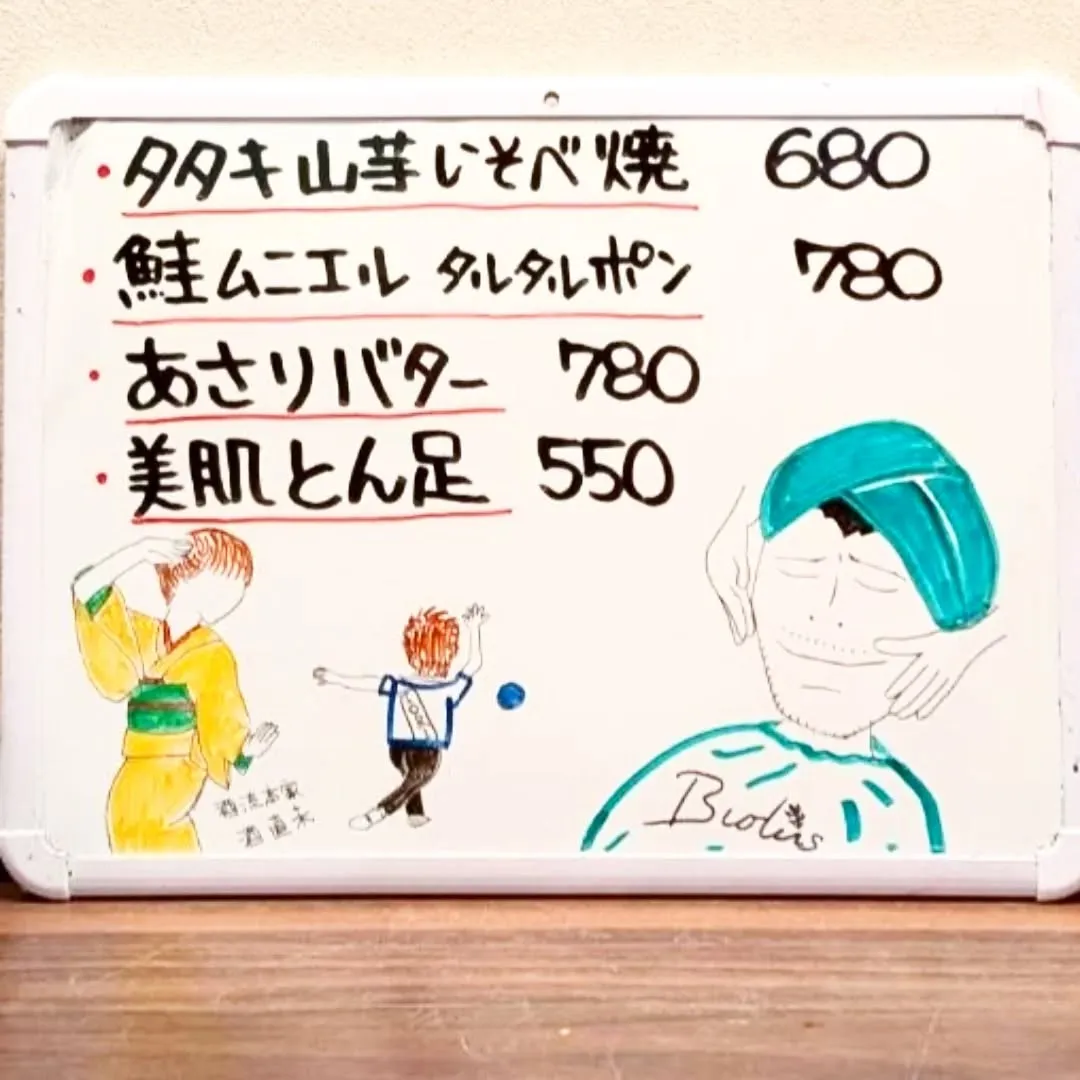 ・タタキ山芋いそべ焼 680
・鮭ムニエル タルタルポン 780
・あさりバター 780
・美肌とん足 550